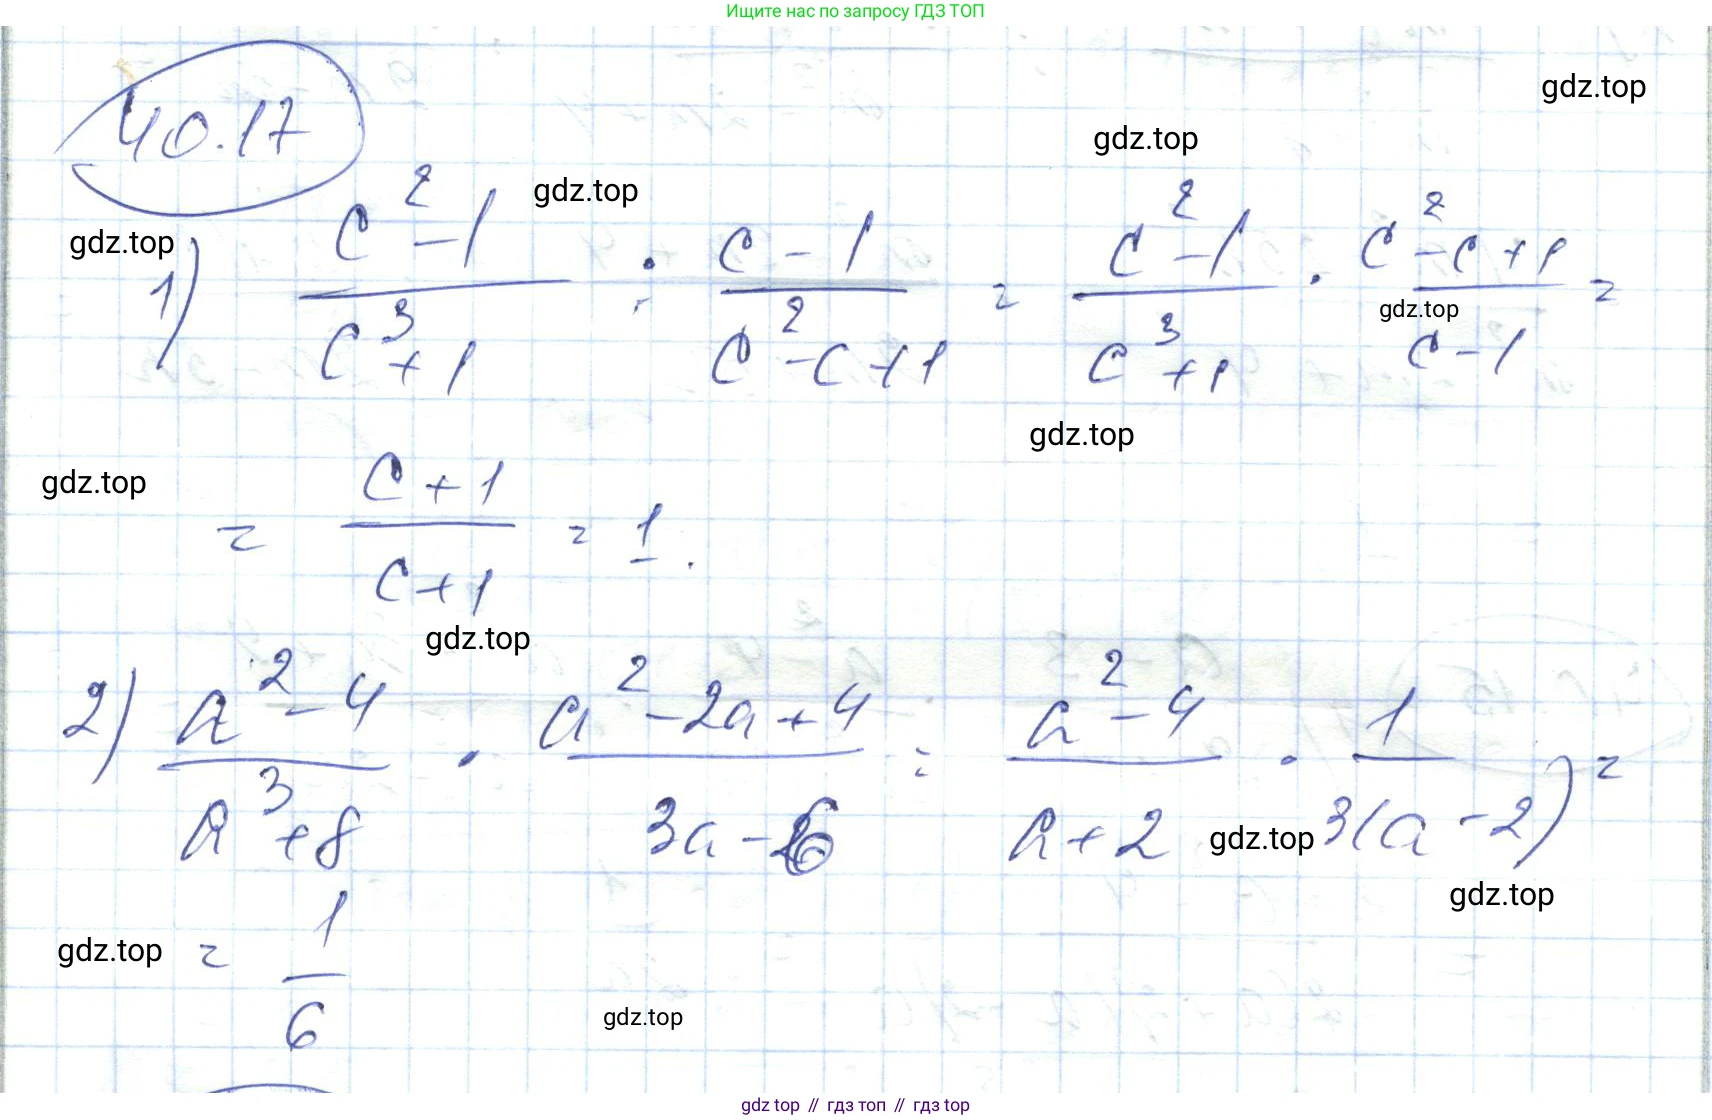 Ищите нас по запросу ГДЗ ТОП
gdz.top
40.17
gdz.top
gdz.top
gdz.top
1) (c² - 1)/(c³ + 1) : (c - 1)/(c² - c + 1) = (c² - 1)/(c³ + 1) · (c² - c + 1)/(c - 1) =
gdz.top
gdz.top
gdz.top
= (c + 1)/(c + 1) = 1.
gdz.top
2) (a² - 4)/(a³ + 8) · (a² - 2a + 4)/(3a - 6) = (a² - 4)/(a + 2) · 1/(3(a - 2)) =
gdz.top
gdz.top
gdz.top
= 1/6
gdz.top
gdz.top // гдз топ // гдз top